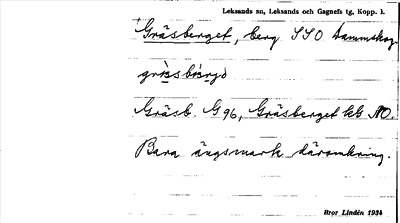 Leksands sn, Leksands och Gagnefs tg, Kopp. l.
Gräsberget, berg SSO Lammskog.
gräsbärjə
Gräsb. G 96, Gräsberget kk NO.
Bara ängsmark däromkring.
Bror Lindén 1934